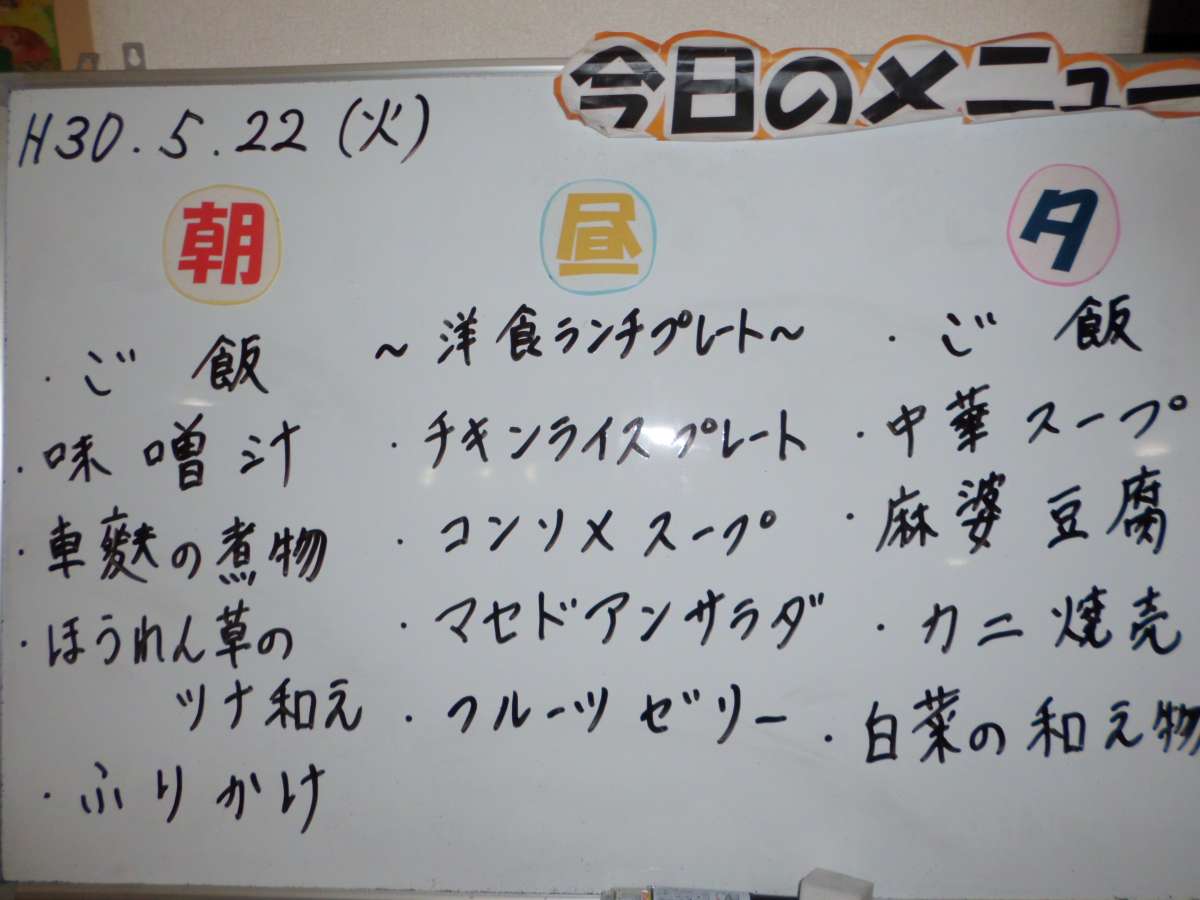 今日のメニュー
H30.5.22(火)
朝
・ご飯
・味噌汁
・車麩の煮物
・ほうれん草の
ツナ和え
・ふりかけ
昼
～洋食ランチプレート～
・チキンライスプレート
・コンソメスープ
・マセドアンサラダ
・フルーツゼリー
夕
・ご飯
・中華スープ
・麻婆豆腐
・カニ焼売
・白菜の和え物